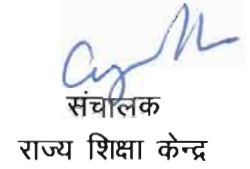 संचालक
राज्य शिक्षा केन्द्र